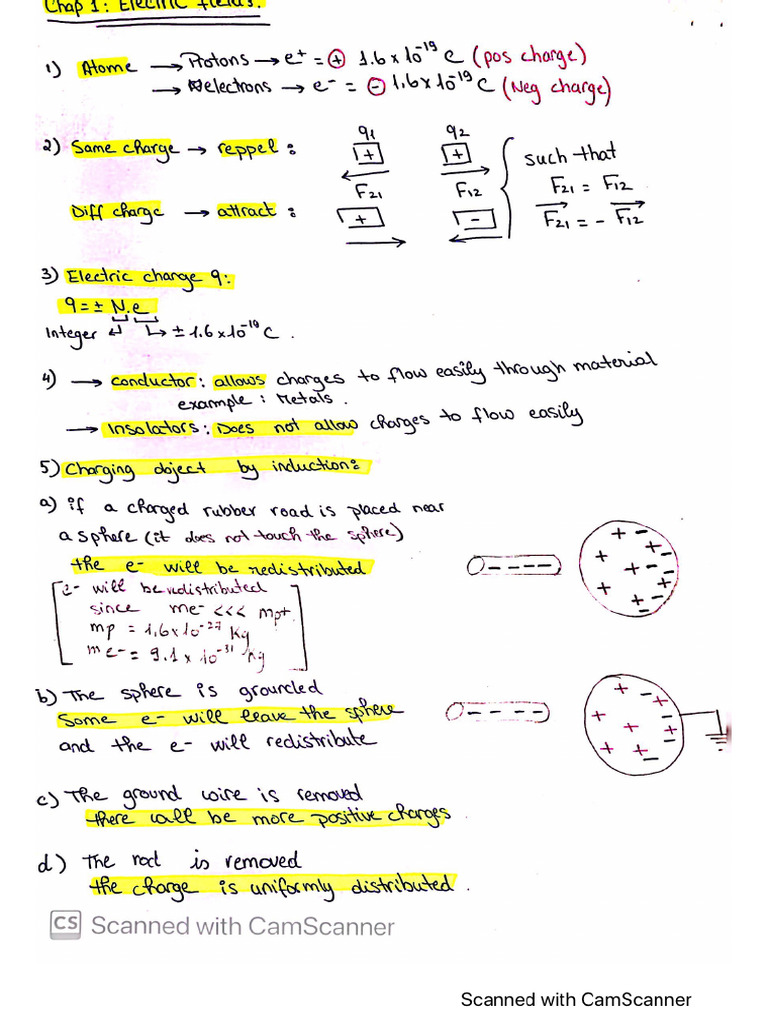 Chap 1: Electric fields.
1) Atome → Protons → e⁺ = ⊕ 1.6 x 10⁻¹⁹ C (pos charge)
→ electrons → e⁻ = ⊖ 1.6 x 10⁻¹⁹ C (Neg charge)
2) Same charge → reppel :
q1 q2
+ +
F21 F12
Diff charge → attract :
+ -
such that
F21 = F12
F21 = - F12
3) Electric charge q:
q = ± N.e
Integer ↲ ↳ ± 1.6 x 10⁻¹⁹ C .
4) → conductor : allows charges to flow easily through material
example : Metals .
→ Insolators : Does not allow charges to flow easily
5) Charging object by induction:
a) if a charged rubber road is placed near
a sphere (it does not touch the sphere)
the e- will be redistributed
[e- will be redistributed
since me- <<< mp+
mp = 1,6 x 10⁻²⁷ Kg
me- = 9.1 x 10⁻³¹ Kg]
b) The sphere is grounded
Some e- will leave the sphere
and the e- will redistribute
c) The ground wire is removed
there will be more positive charges .
d) The rod is removed
the charge is uniformly distributed .
CS Scanned with CamScanner
Scanned with CamScanner